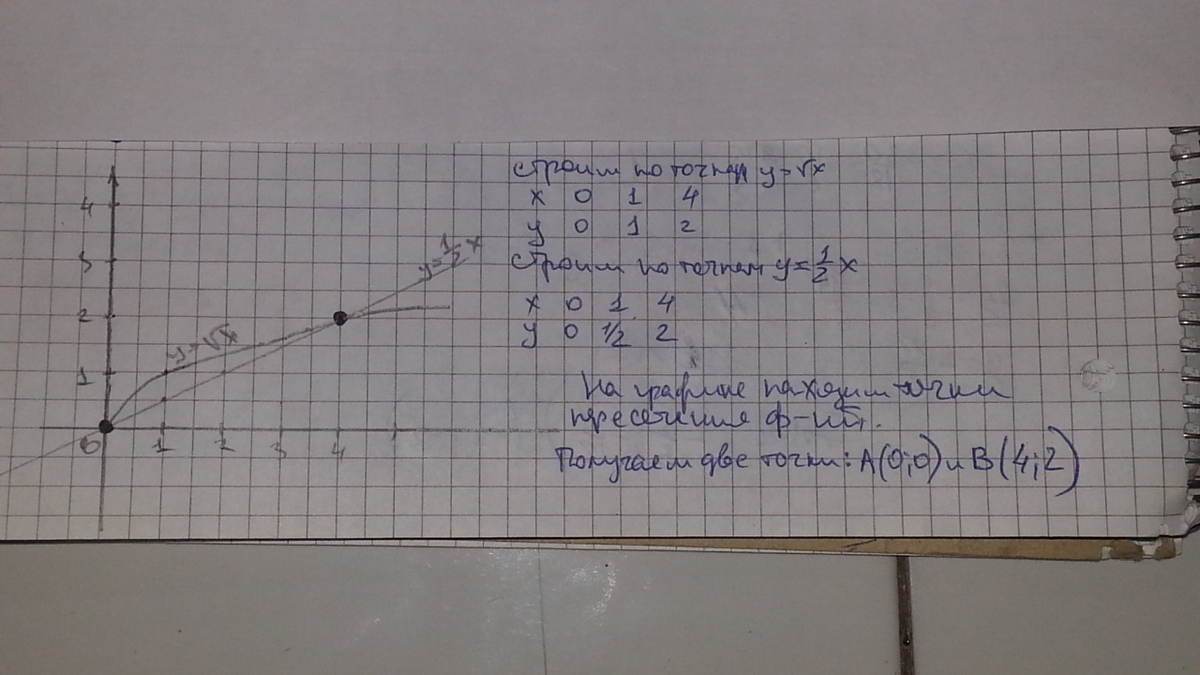 4
3
2
1
0
1
2
3
4
y=√x
y=1/2 x
Строим по точкам y=√x
x 0 1 4
y 0 1 2
Строим по точкам y=1/2 x
x 0 1 4
y 0 1/2 2
На графике находим точки
пересечения ф-ий.
Получаем две точки: A(0;0) и B(4;2)